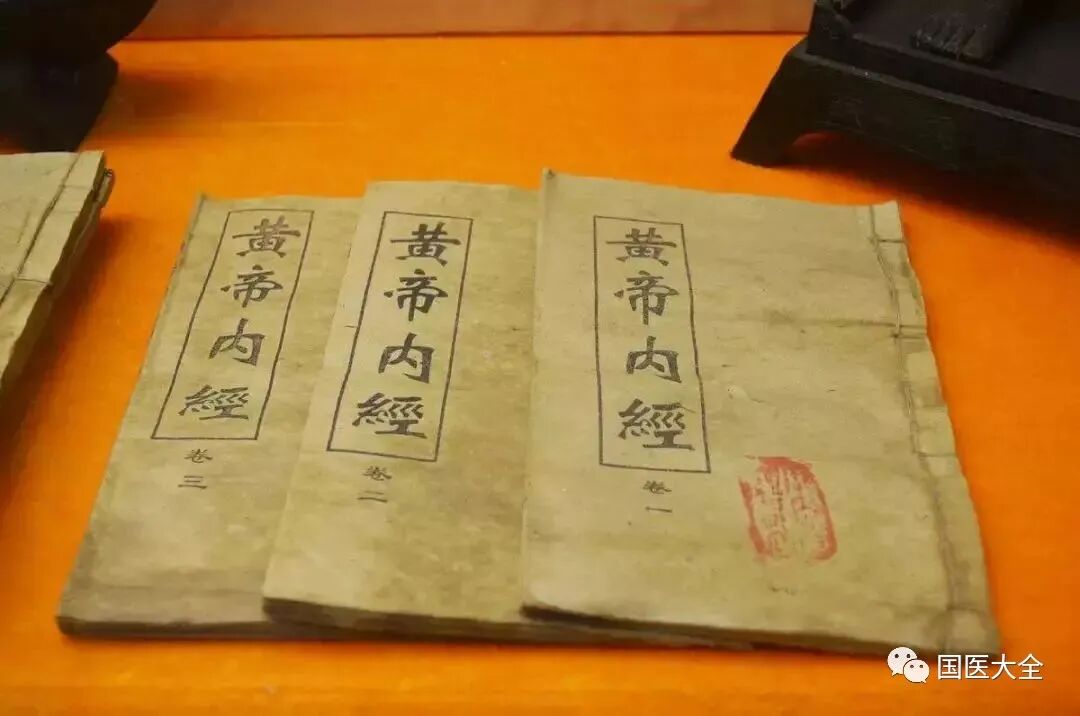 黄帝内經
卷三
黄帝内經
卷二
黄帝内經
卷一
国医大全